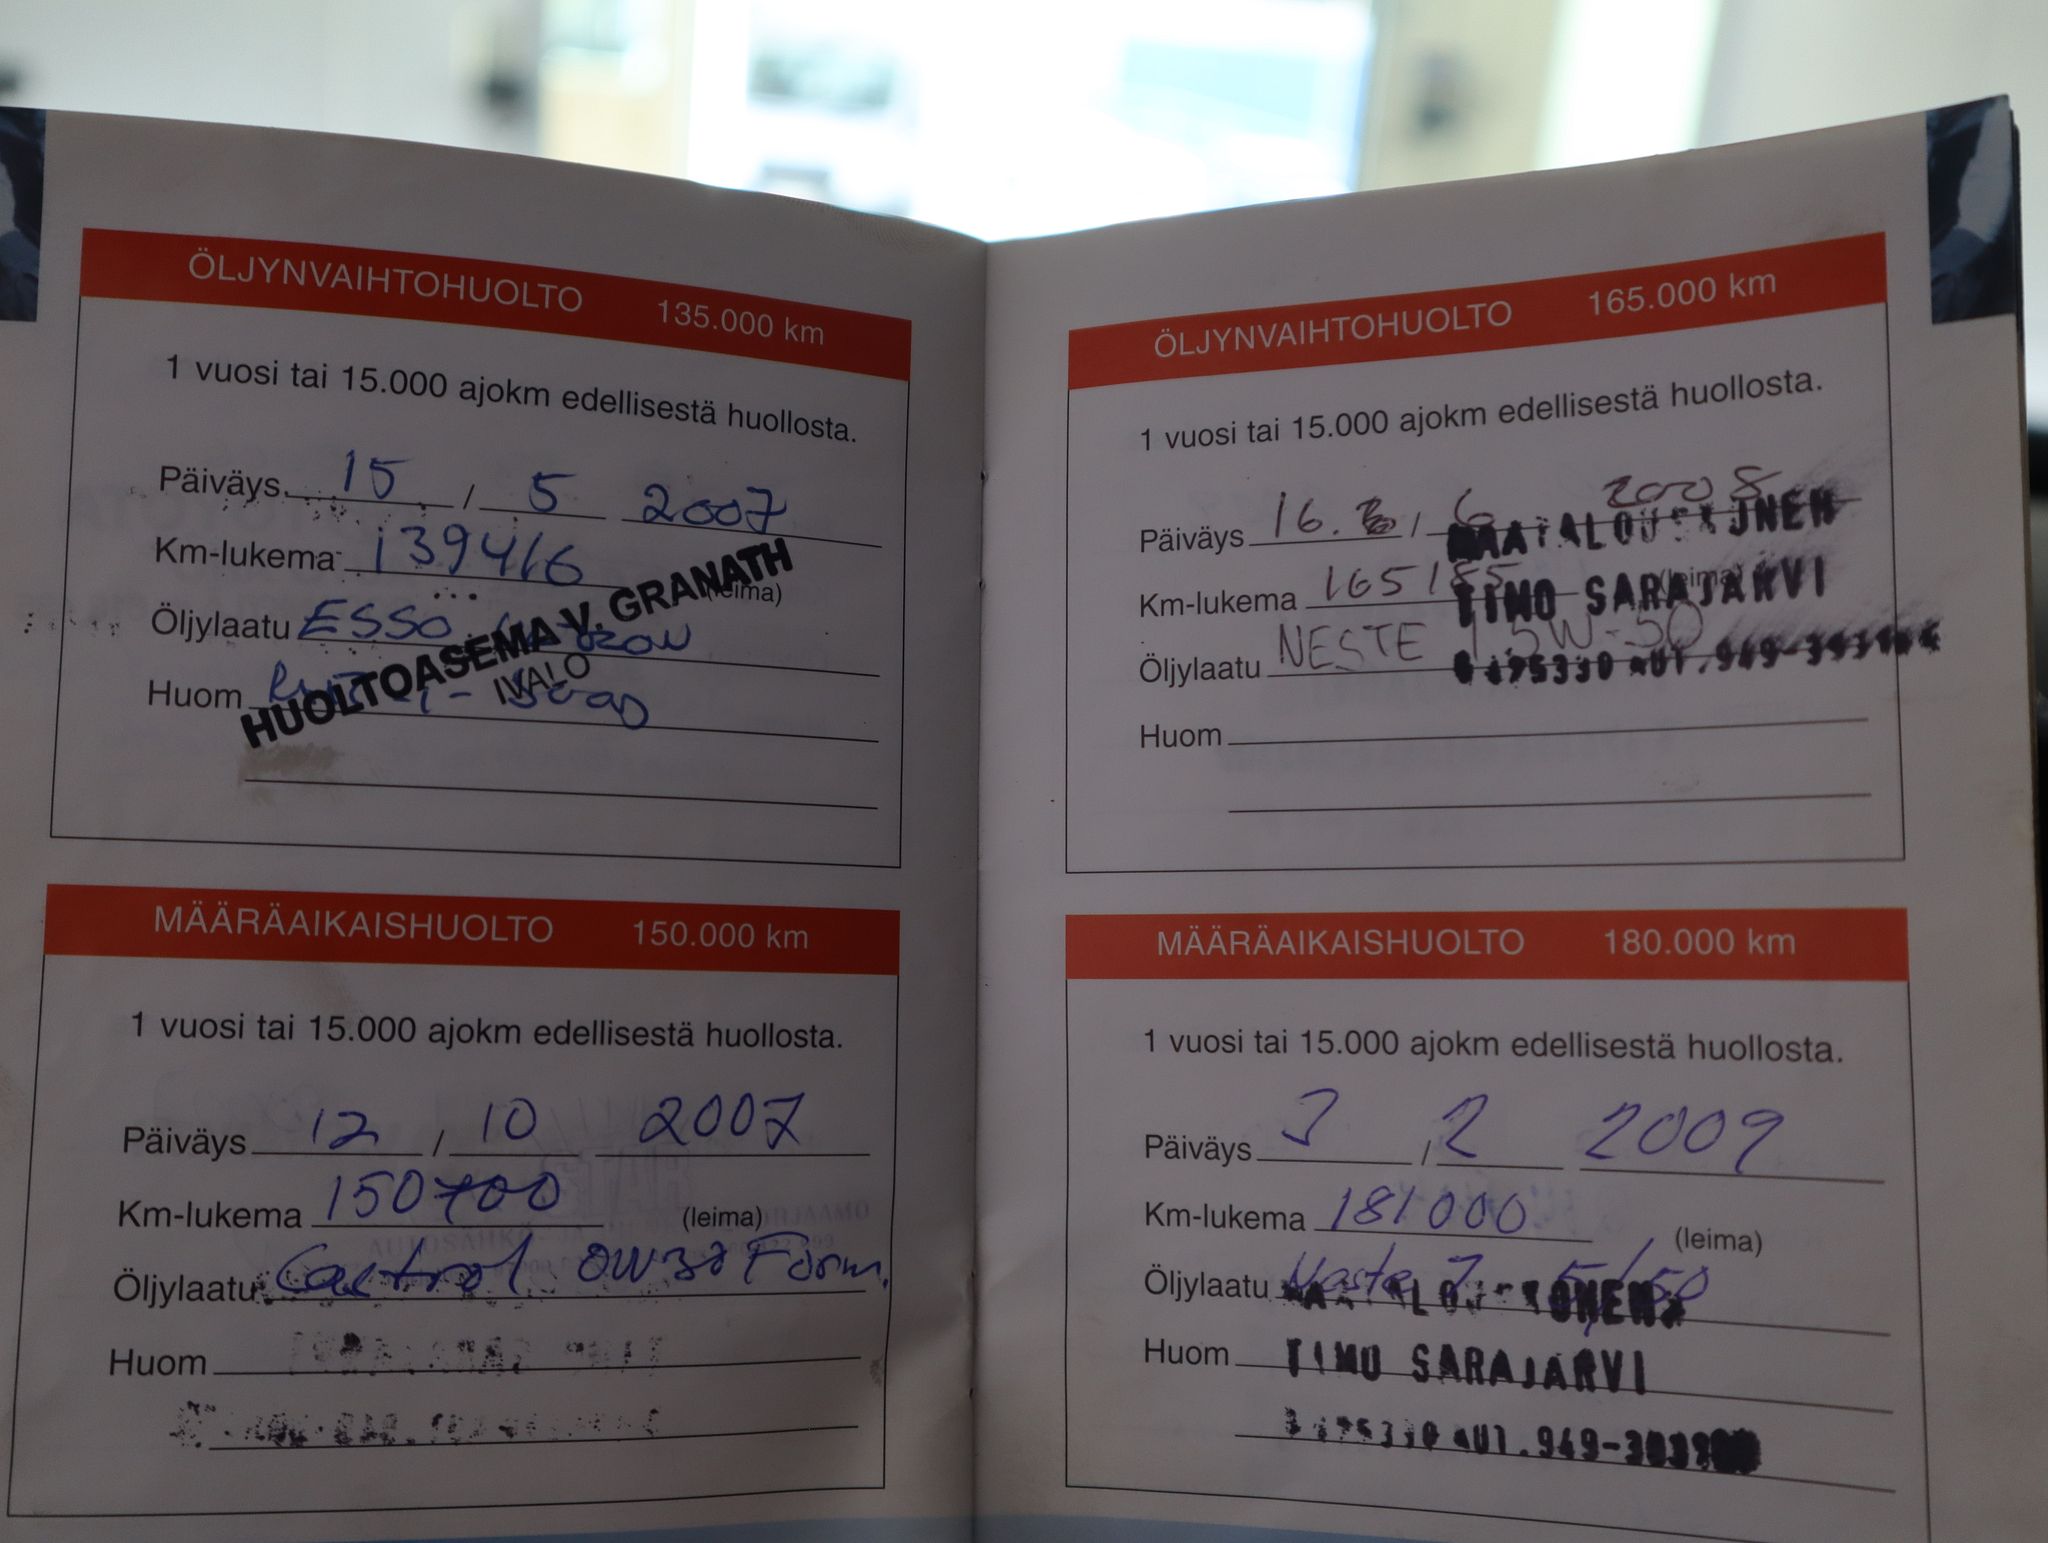 ÖLJYNVAIHTOHUOLTO 135.000 km
1 vuosi tai 15.000 ajokm edellisestä huollosta.
Päiväys 15 / 5 2007
Km-lukema 139416
(leima)
Öljylaatu ESSO
Huom
HUOLTOASEMA V. GRANATH
IVALO
MÄÄRÄAIKAISHUOLTO 150.000 km
1 vuosi tai 15.000 ajokm edellisestä huollosta.
Päiväys 12 / 10 2007
Km-lukema 150700 (leima)
Öljylaatu Castrol 0W30 Form.
Huom
ÖLJYNVAIHTOHUOLTO 165.000 km
1 vuosi tai 15.000 ajokm edellisestä huollosta.
Päiväys 16. / 6 2008
Km-lukema (leima)
TIMO SARAJÄRVI
Öljylaatu NESTE
Huom
MÄÄRÄAIKAISHUOLTO 180.000 km
1 vuosi tai 15.000 ajokm edellisestä huollosta.
Päiväys 3 / 2 2009
Km-lukema 181000
(leima)
Öljylaatu Neste
Huom TIMO SARAJÄRVI